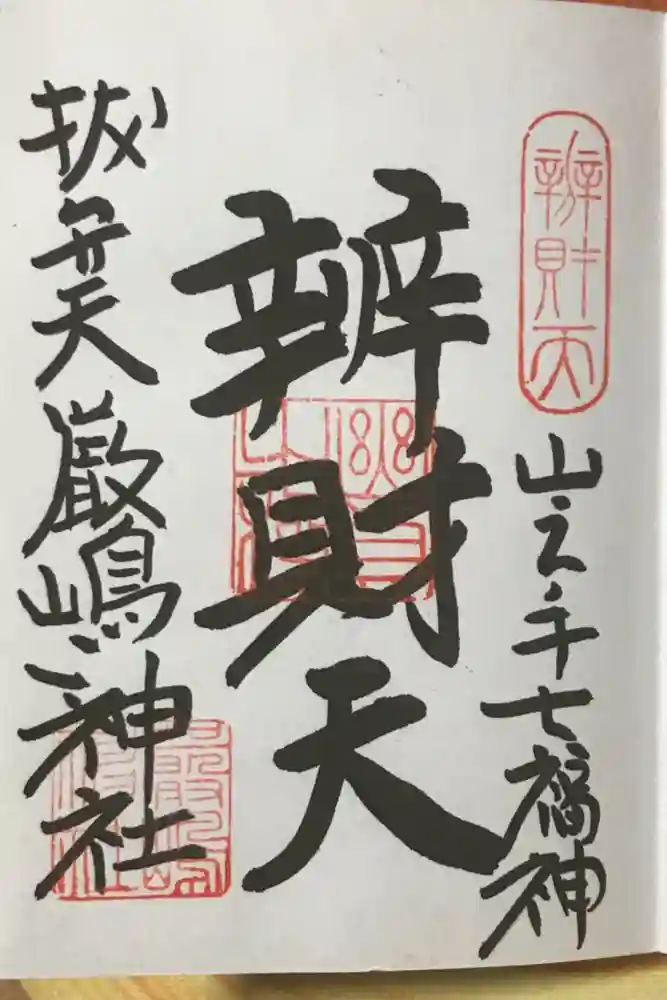 辨財天
山之手七福神
辨財天
抜弁天厳嶋神社